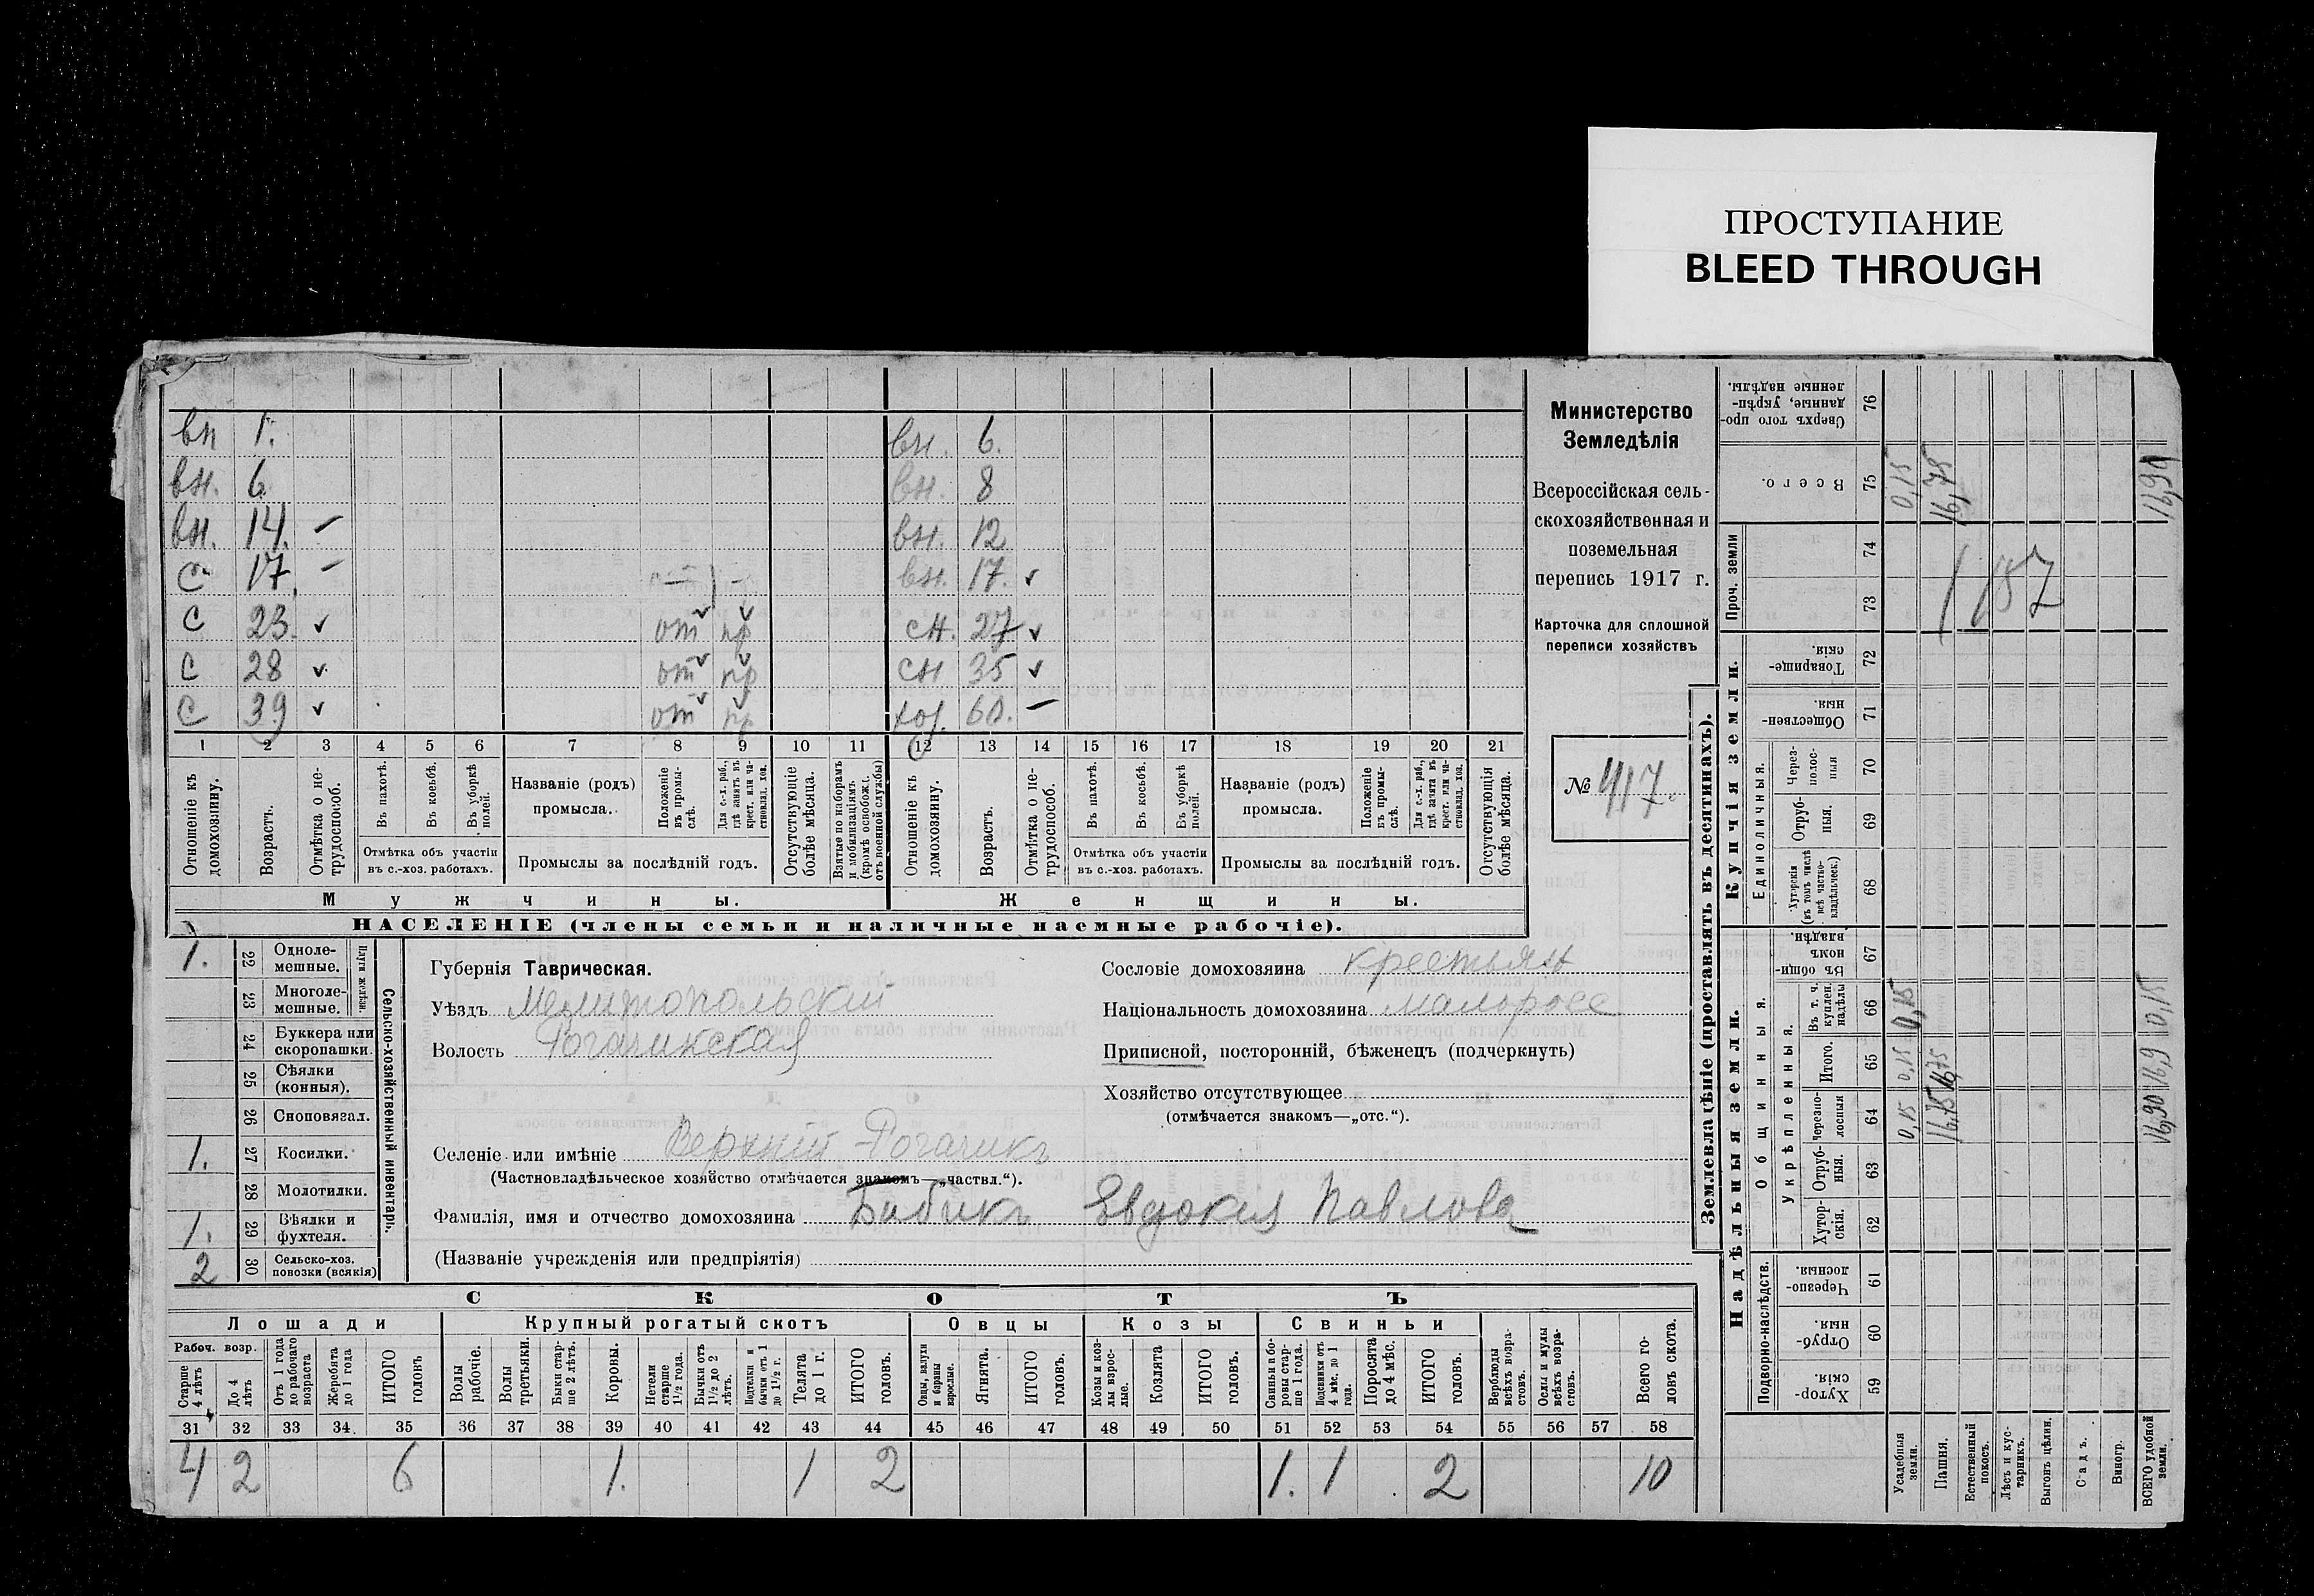 ПРОСТУПАНИЕ
BLEED THROUGH
вн 1.
вн. 6
вн. 14. –
с 17. –
с 23. ᵛ от пр
с 28 ᵛ от пр
с 39 ᵛ от пр
вн. 6.
вн. 8
вн. 12
вн. 17. ᵛ
сн. 27 ᵛ
сн 35 ᵛ
хоз. 60. –
1 2 3 4 5 6 7 8 9 10 11 12 13 14 15 16 17 18 19 20 21
Отношеніе къ домохозяину.
Возрастъ.
Отмѣтка о не-трудоспособ.
Въ пахотѣ.
Въ косьбѣ.
Въ уборкѣ полей.
Отмѣтка объ участіи
въ с.-хоз. работахъ.
Названіе (родъ)
промысла.
Положеніе въ промы-слѣ.
Для с.-х. раб., гдѣ занятъ въ крест. или ча-стновлад. хоз.
Промыслы за послѣдній годъ.
Отсутствующіе болѣе мѣсяца.
Взятые по наборамъ и мобилизаціямъ (кромѣ освобожд. отъ военной службы)
Отношеніе къ домохозяину.
Возрастъ.
Отмѣтка о не-трудоспособ.
Въ пахотѣ.
Въ косьбѣ.
Въ уборкѣ полей.
Отмѣтка объ участіи
въ с.-хоз. работахъ.
Названіе (родъ)
промысла.
Положеніе въ промы-слѣ.
Для с.-х. раб., гдѣ занята въ крест. или ча-стновлад. хоз.
Промыслы за послѣдній годъ.
Отсутствующія болѣе мѣсяца.
Мужчины.
Женщины.
НАСЕЛЕНІЕ (члены семьи и наличные наемные рабочіе).
Министерство
Земледѣлія
Всероссійская сель-
скохозяйственная и
поземельная
перепись 1917 г.
Карточка для сплошной
переписи хозяйствъ
№ 417
1. 22 Одноле-
мешные.
23 Многоле-
мешные.
Плуги желѣзн.
24 Буккера или
скоропашки.
25 Сѣялки
(конныя).
26 Сноповязал.
1. 27 Косилки.
28 Молотилки.
1. 29 Вѣялки и
фухтеля.
2 30 Сельско-хоз.
повозки (всякія)
Сельско-хозяйственный инвентарь.
Губернія Таврическая.
Уѣздъ Мелитопольскій
Волость Рогачикская
Селеніе или имѣніе Верхній Рогачикъ
(Частновладѣльческое хозяйство отмѣчается знакомъ—„частвл.“).
Фамилія, имя и отчество домохозяина Бабикъ Евдокія Павлова
(Названіе учрежденія или предпріятія)
Сословіе домохозяина крестьян
Національность домохозяина малоросс
Приписной, посторонній, бѣженецъ (подчеркнуть)
Хозяйство отсутствующее
(отмѣчается знакомъ—„отс.“).
СКОТЪ
Лошади Крупный рогатый скотъ Овцы Козы Свиньи
Рабоч. возр.
Старше 4 лѣтъ
До 4 лѣтъ
Отъ 1 года до рабочаго возраста
Жеребята до 1 года
ИТОГО головъ
Волы рабочіе.
Волы третьяки.
Быки стар-ше 2 лѣтъ.
Коровы.
Нетели старше 1½ года.
Бычки отъ 1½ до 2 лѣтъ.
Подтелки и бычки отъ 1 до 1½ г.
Телята до 1 г.
ИТОГО головъ.
Овцы, валухи и бараны взрослые.
Ягнята.
ИТОГО головъ.
Козы и коз-лы взрос-лые.
Козлята
ИТОГО головъ.
Свиньи и бо-ровы стар-ше 1 года.
Подсвинки отъ 4 мѣс. до 1 года.
Поросята до 4 мѣс.
ИТОГО головъ.
Верблюды всѣхъ возра-стовъ.
Ослы и мулы всѣхъ возра-стовъ.
Всего го-ловъ скота.
31 32 33 34 35 36 37 38 39 40 41 42 43 44 45 46 47 48 49 50 51 52 53 54 55 56 57 58
4 2 6 1. 1 2 1. 1 2 10
Землевладѣніе (проставлять въ десятинахъ).
Надѣльныя земли.
Купчія земли.
Проч. земли
Подворно-наслѣдств.
Общинныя.
Укрѣпленныя.
Единоличныя.
Хутор-скія. 59
Отруб-ныя. 60
Черезпо-лосныя. 61
Хутор-скія. 62
Отруб-ныя. 63
Черезпо-лосныя 64
Итого. 65
Въ т. ч. куплен. надѣлы 66
Въ общи-номъ владѣн. 67
Хуторскія (въ томъ числѣ всѣ частно-владѣльческ.) 68
Отруб-ныя. 69
Через-полос-ныя 70
Обществен-ныя. 71
Товарище-скія. 72
73
74
Всего. 75
Сверхъ того про-данные, укрѣп-ленные надѣлы. 76
Усадебныя земли. 0,15 0,15 0,15 0,15
Пашня. 16,75 16,75 16,78
Естественный покосъ.
Лѣсъ и кус-тарникъ.
Выгонъ цѣлин.
Садъ.
Виногр.
ВСЕГО удобной земли. 16,90 16,9 0,15
157